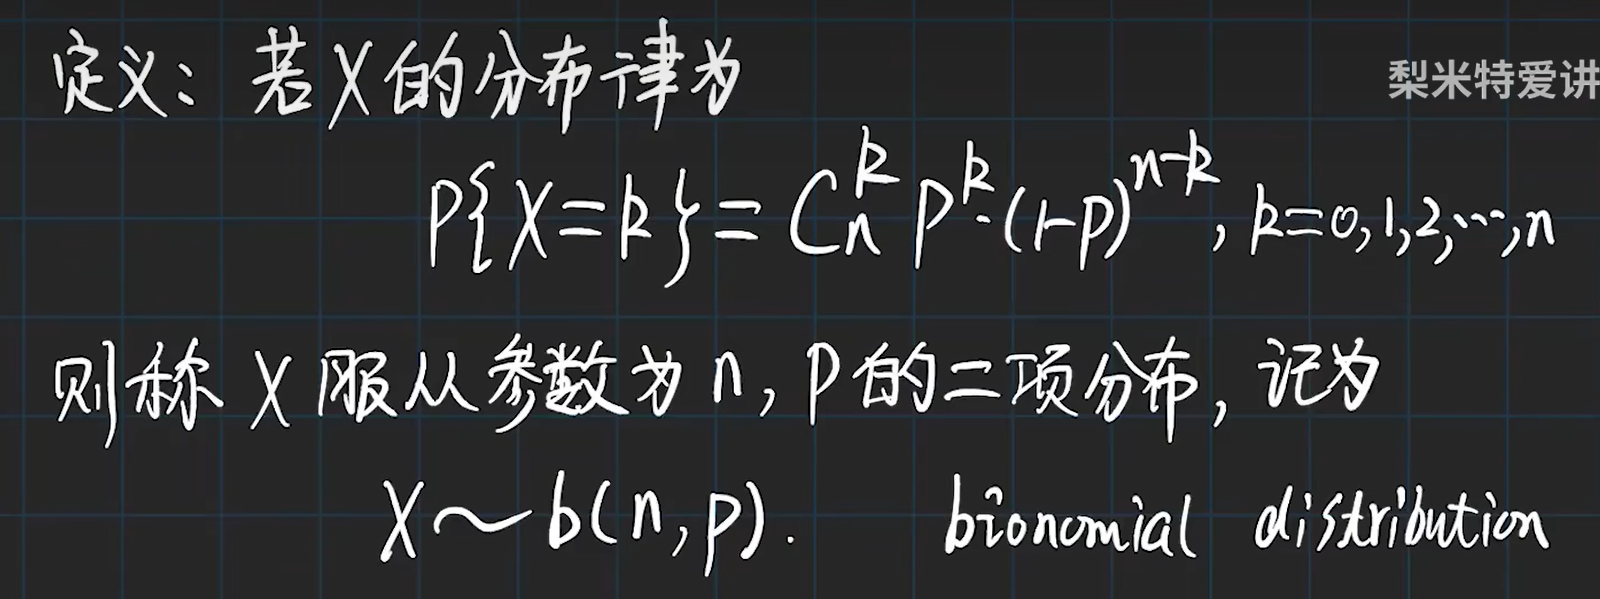 定义：若X的分布律为
梨米特爱讲
P{X=k}=C_n^k p^k·(1-p)^{n-k}, k=0,1,2,…,n
则称X服从参数为n,p的二项分布,记为
X~b(n,p). bionomial distribution